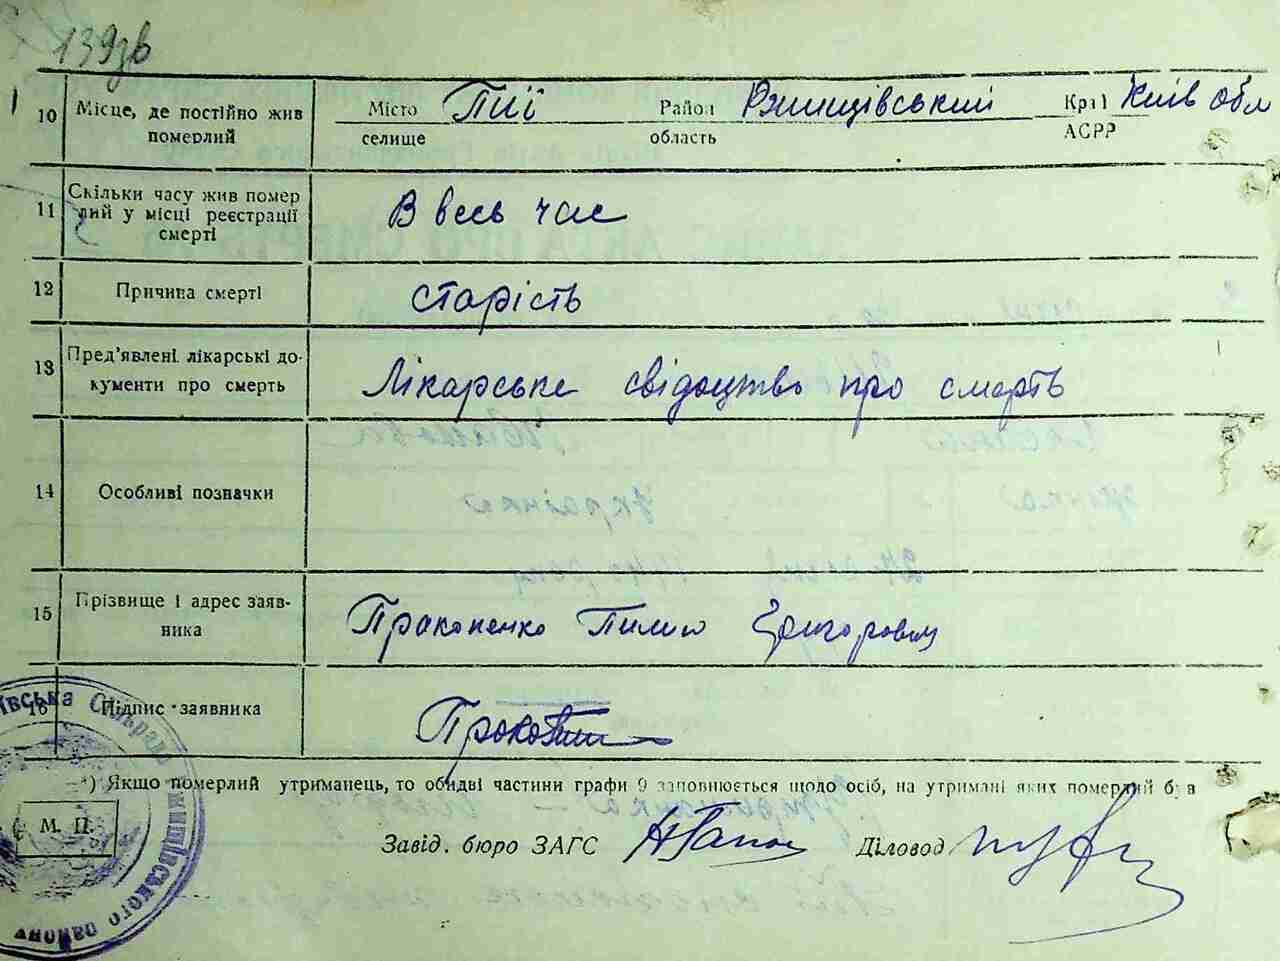 139зв
10 Місце, де постійно жив померлий Місто селище Пиї Район область Ржищівський Край АСРР Київ обл
11 Скільки часу жив померлий у місці реєстрації смерті В весь час
12 Причина смерті старість
13 Пред'явлені лікарські документи про смерть Лікарське свідоцтво про смерть
14 Особливі позначки
15 Прізвище і адрес заявника Прокопенко Пилип Григорович
16 Підпис заявника
*) Якщо померлий утриманець, то обидві частини графи 9 заповнюється щодо осіб, на утримані яких померлий був
М. П.
Завід. бюро ЗАГС Діловод
Сільрада Ржищівського району